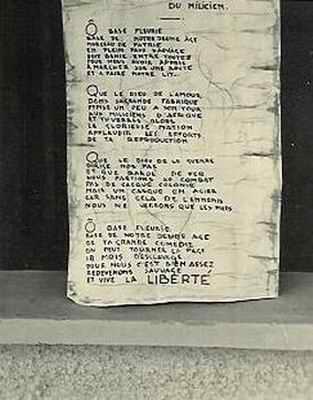 DU MILICIEN.
Ô BASE FLEURIE
BASE DE NOTRE JEUNE AGE
MORCEAU DE PATRIE
EN PLEIN PAYS SAUVAGE
SOIT BENIE ENTRE TOUTES
POUR NOUS AVOIR APPRIS
A MARCHER SUR UNE ROUTE
ET A FAIRE NOTRE LIT...
QUE LE DIEU DE L'AMOUR
DANS SA GRANDE FABRIQUE
PENSE UN PEU A SON TOUR
AUX MILICIENS D'AFRIQUE
ET TU VERRAS ALORS
LA GLORIEUSE NATION
APPLAUDIR LES EFFORTS
DE TA REPRODUCTION
QUE LE DIEU DE LA GUERRE
DIRIGE NOS PAS
ET QUE BARDÉ DE FER
NOUS PARTIONS AU COMBAT
PAS DE CASQUE COLONIE
MAIS UN CASQUE EN ACIER
CAR SANS CELA DE L'ENNEMIS
NOUS NE VERRONS QUE LES PIEDS
Ô BASE FLEURIE
BASE DE NOTRE JEUNE AGE
DE TA GRANDE COMEDIE
ON PEUT TOURNER LA PAGE
18 MOIS D'ESCLAVAGE
POUR NOUS C'EST BIEN ASSEZ
REDEVENONS SAUVAGE
ET VIVE LA LIBERTÉ